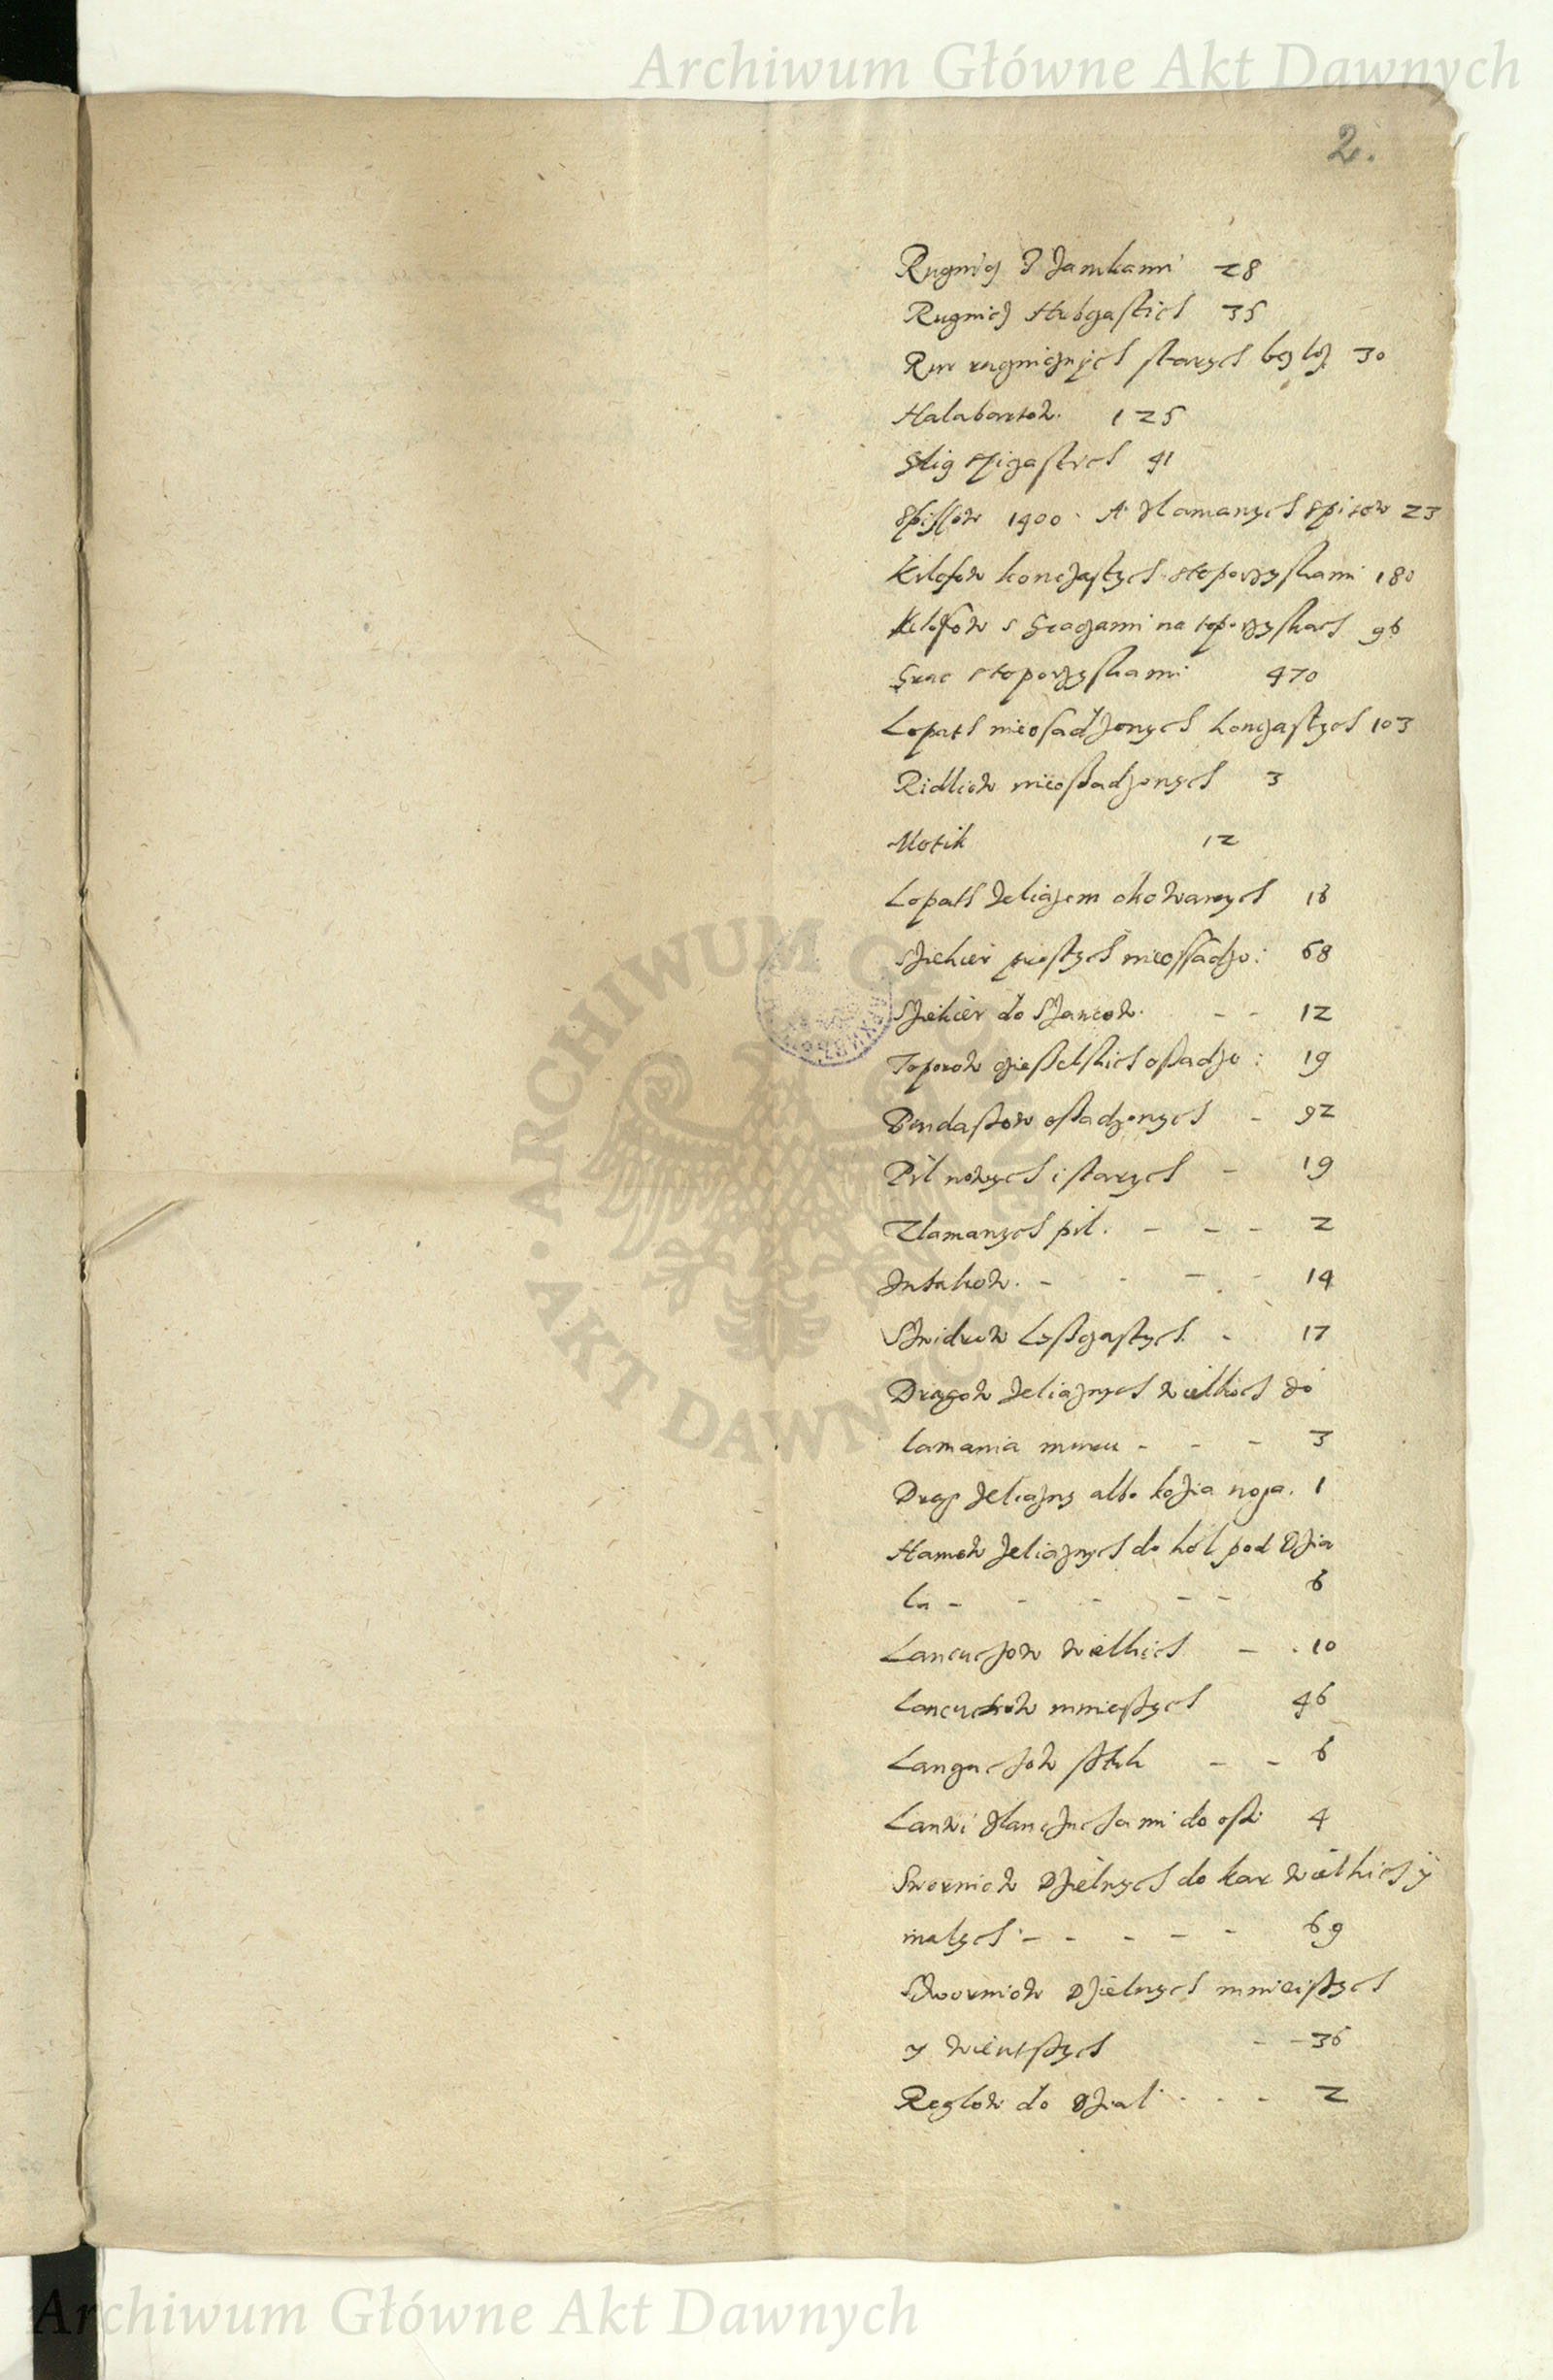 Archiwum Główne Akt Dawnych
2.
Rugnicz Z Zamkami 28
Rugnicz Hubczastich 35
Rur rugnicznych starych bez loz 30
Halabartow. 125
41
Spissow 1400. A Zlamanych Spisow 23
Kilofow konczastych stoporzyskami 180
Kilofow s Gracami na toporzyskach 96
Grac stoporzyskami 470
Lopath nieosadzonych konczastych 103
Ridliow nieossadzonych 3
Motik 12
Lopath Zeliazem okowanych 16
Siekier prostych nieossadzo: 68
Siekier do Szancow. - - 12
Toporow cziesielskich ossadzo: 19
ossadzonych - 92
Pil nowych i starych - 19
Zlamanych pil. - - - 2
- - - - 14
Swidrow Lyszczastych. - 17
Drągow Zeliaznych wielkich do
lamania muru - - - 3
Drąg Zeliazny albo kozia noga. 1
Hamow Zeliaznych do kol pod Dzia
la - - - - - 6
Lancuchow wielkich - . 10
Lancuchow mnieszych 46
Languchow sztuk - - 6
do osi 4
Sworniow Dzielnych do kar wielkich y
malych - - - - - 69
Sworniow Dzielnych mnieiszych
y wientszych - - 36
Reglow do Dzial - - - 2
ARCHIWUM GŁÓWNE · AKT DAWNYCH ·
Archiwum Główne Akt Dawnych